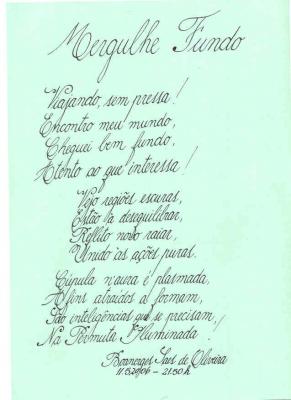 Mergulhe Fundo
Viajando, sem pressa!
Encontro meu mundo,
Cheguei bem fundo,
Atento ao que interessa!
Vejo regiões escuras,
Estão a desequilibrar,
Reflito novo raiar,
Unido às ações puras.
Cúpula n'aura é plasmada,
Afins atraídos a formam,
São inteligências que se precisam,
Na Permuta Iluminada!
Boanerges Saes de Oliveira
11.5.2006 - 21:50h